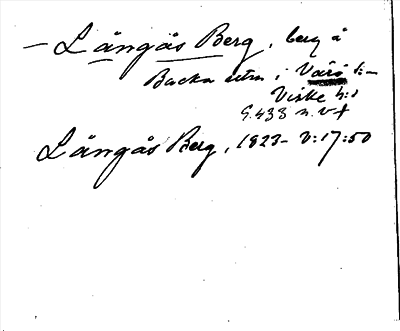 – Långås Berg, berg å
Backa utm. i Värö s:n
Viske h:d
G.438 n.v.f
Långås Berg, 1823- V:17:50